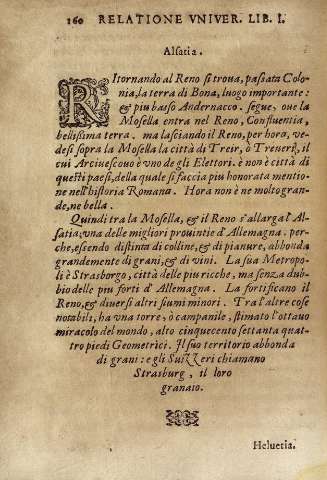 160 RELATIONE VNIVER. LIB. I.
Alsatia.
RItornando al Reno si troua, passata Colo-
nia, la terra di Bona, luogo importante:
& piu basso Andernacco. segue, oue la
Mosella entra nel Reno, Confluentia,
bellissima terra. ma lasciando il Reno, per hora, ve-
desi sopra la Mosella la città di Treir, ò Treuerẹ, il
cui Arciuescouo è vno de gli Elettori. è non è città di
questi paesi, della quale si faccia piu honorata mentio-
ne nell'historia Romana. Hora non è ne molto gran-
de, ne bella.
Quindi tra la Mosella, & il Reno s'allarga l'Al-
satia, vna delle migliori prouintie d'Allemagna. per-
che, essendo distinta di colline, & di pianure, abbonda
grandemente di grani, & di vini. La sua Metropo-
li è Strasborgo, città delle piu ricche, ma senza dub-
bio delle piu forti d'Allemagna. La fortificano il
Reno, & diuersi altri fiumi minori. Tra l'altre cose
notabili, ha vna torre, ò campanile, stimato l'ottauo
miracolo del mondo, alto cinquecento settanta quat-
tro piedi Geometrici. Il suo territorio abbonda
di grani: e gli Suizzeri chiamano
Strasburg, il loro
granato.
Heluetia.